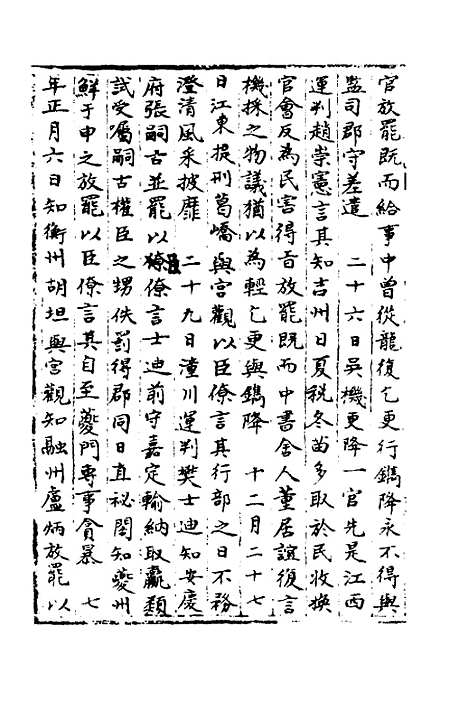 官放罷既而給事中曾從龍復乞更行鐫降永不得與
監司郡守差遣　二十六日吳機更降一官先是江西
運判趙崇憲言其知吉州日夏稅冬苗多取於民收換
官會反為民害得旨放罷既而中書舍人董居誼復言
機採之物議猶以為輕乞更與鐫降　十二月二十七
日江東提刑葛嶠與宮觀以臣僚言其行部之日不務
澄清風采披靡　二十九日潼川運判樊士迪知安慶
府張嗣古並罷以臣僚言士迪前守嘉定輸納取贏類
試受囑嗣古權臣之甥佚罰得郡同日直祕閣知夔州
鮮于申之放罷以臣僚言其自至夔門專事貪暴　七
年正月六日知衡州胡坦與宮觀知融州盧炳放罷以